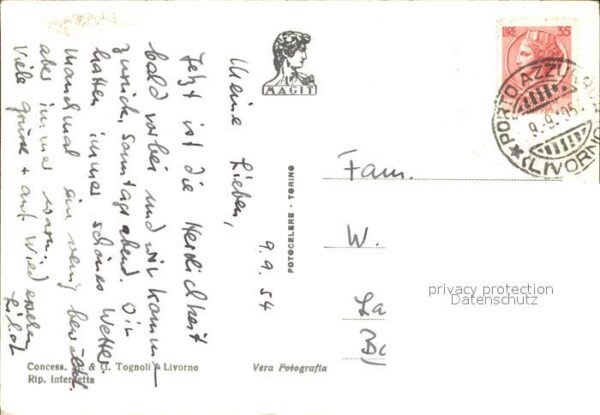 Meine Lieben,
9.9.54
Jetzt ist die Herrlichkeit
bald vorbei und wir kommen
zurück, Sonntag abend. Wir
hatten immer schönes Wetter
manchmal ein wenig bewölkt
aber immer warm.
Viele Grüsse + auf Wiedersehen
MAGIT
FOTOCELERE · TORINO
LIRE 35
PORTO AZZURRO
9.9.
(LIVORNO)
Fam.
W.
privacy protection
Datenschutz
Concess. & G. Tognoli Livorne
Rip. interdetta
Vera Fotografia